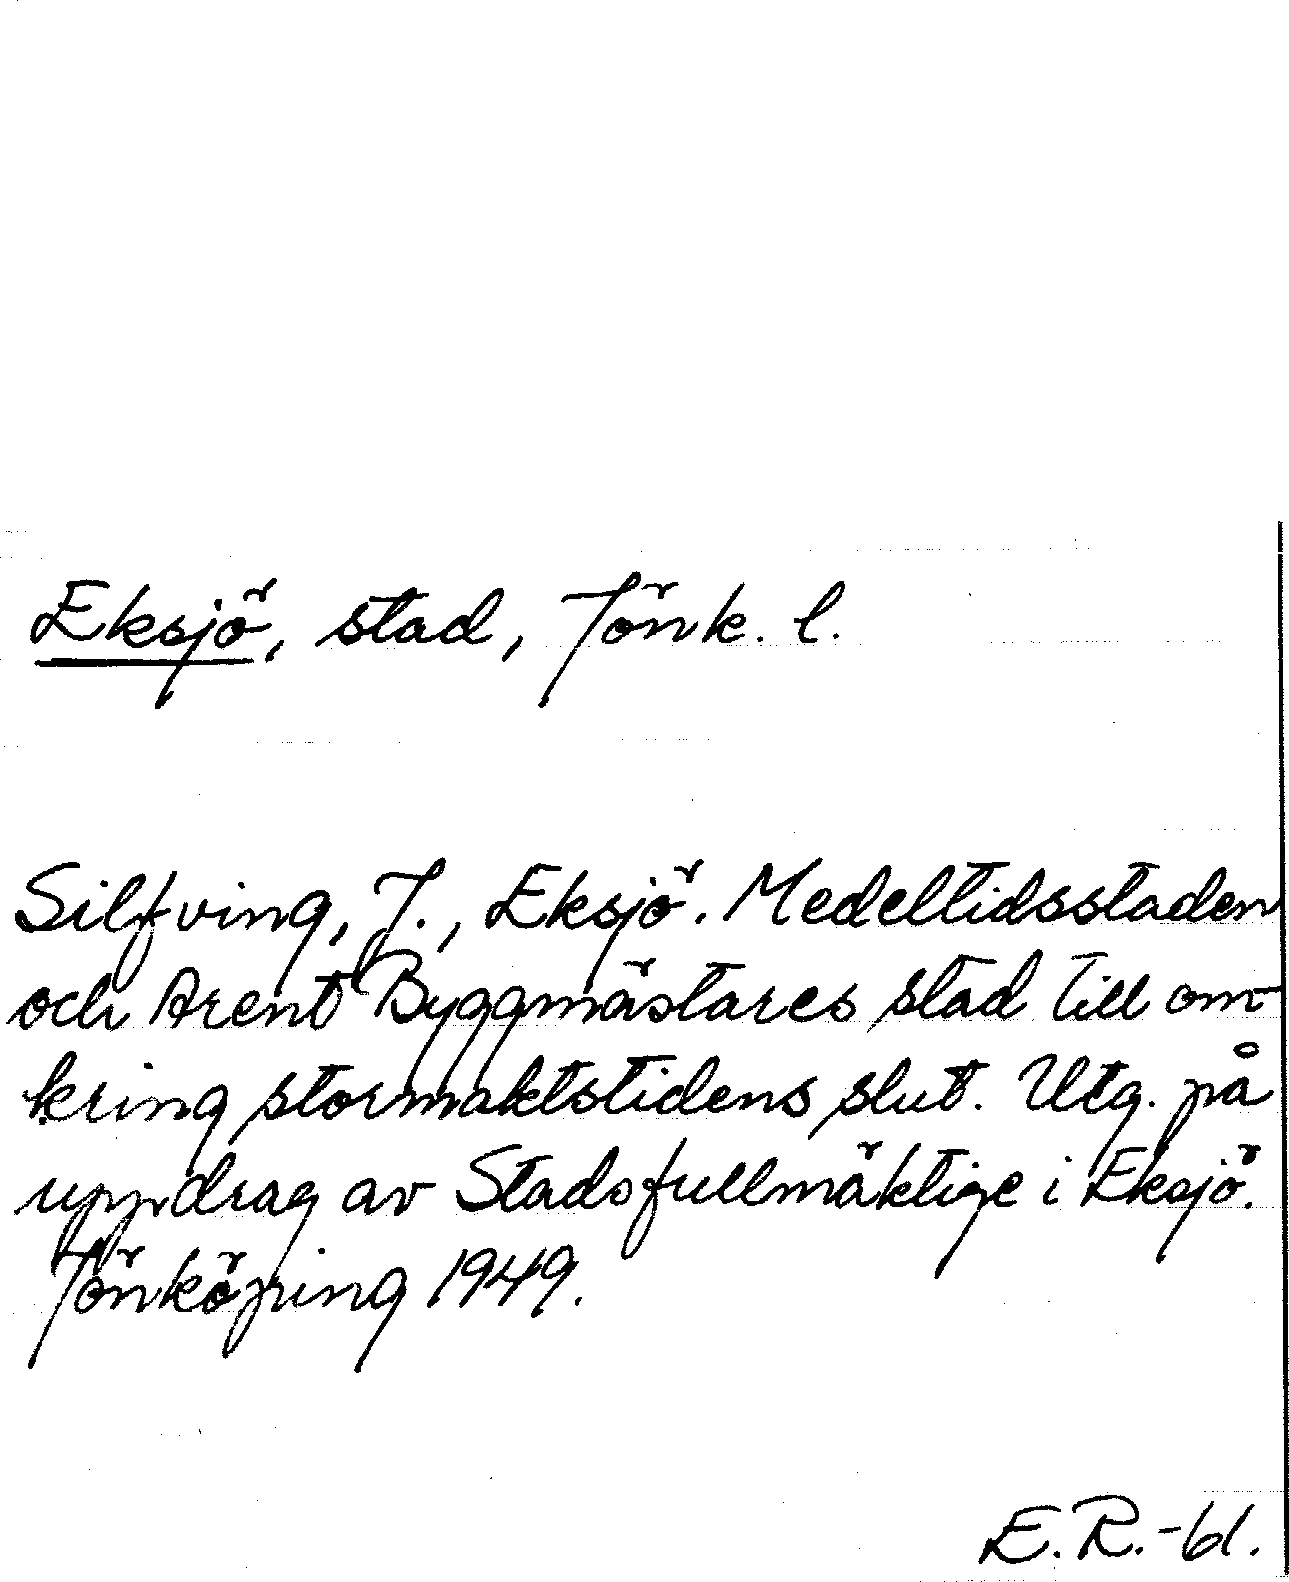 Eksjö, stad, Jönk. l.
Silfving, J., Eksjö. Medeltidsstaden
och Arent Byggmästares stad till om-
kring stormaktstidens slut. Utg. på
uppdrag av Stadsfullmäktige i Eksjö.
Jönköping 1949.
E.R.-61.